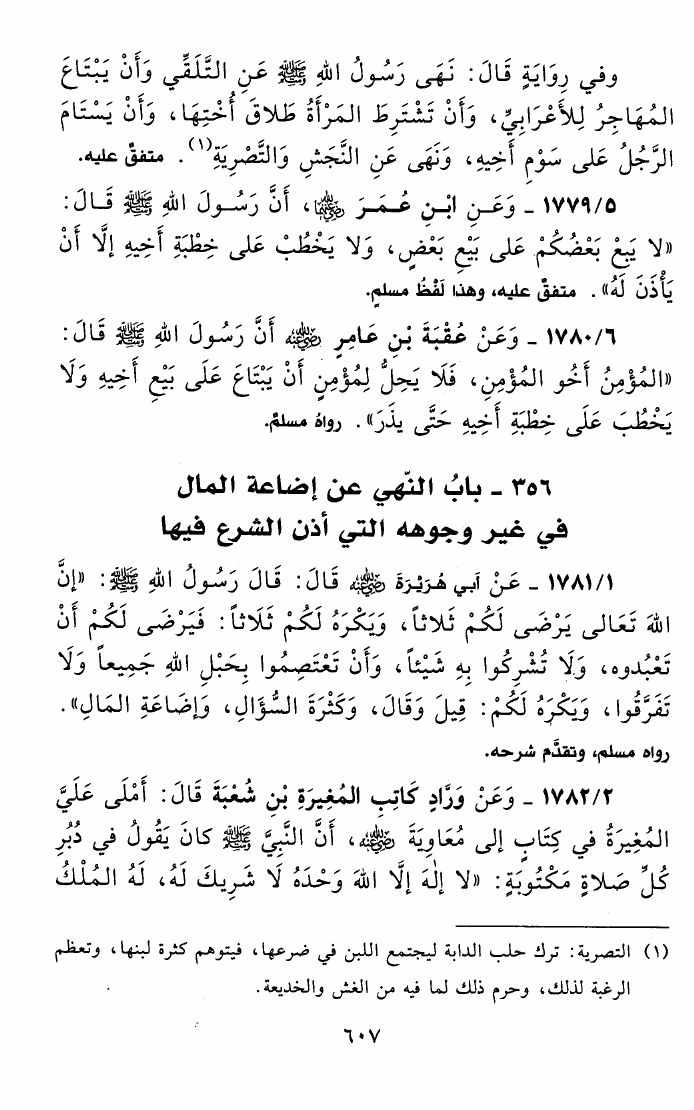 وفي رِوَايَةٍ قَالَ: نَهَى رَسُولُ اللهِ ﷺ عَنِ التَّلَقِّي وَأَنْ يَبْتَاعَ
المُهَاجِرُ لِلأَعْرَابِيِّ، وَأَنْ تَشْتَرِطَ المَرْأَةُ طَلاقَ أُخْتِهَا، وَأَنْ يَسْتَامَ
الرَّجُلُ عَلى سَوْمِ أَخِيهِ، وَنَهَى عَنِ النَّجَشِ وَالتَّصْرِيَةِ(١). متفقٌ عليه.
١٧٧٩/٥ ـ وَعَـنِ ابْـنِ عُـمَـرَ ﵄، أَنَّ رَسُـولَ اللهِ ﷺ قَـالَ:
«لا يَبِعْ بَعْضُكُمْ عَلى بَيْعِ بَعْضٍ، وَلا يَخْطُبْ عَلى خِطْبَةِ أَخِيهِ إلَّا أَنْ
يَأْذَنَ لَهُ». متفقٌ عليه، وهذا لَفْظُ مسلمٍ.
١٧٨٠/٦ ـ وَعَنْ عُقْبَةَ بْنِ عَامِرٍ ﵁ أَنَّ رَسُولَ اللهِ ﷺ قَالَ:
«المُؤْمِنُ أَخُو المُؤْمِنِ، فَلَا يَحِلُّ لِمُؤْمِنٍ أَنْ يَبْتَاعَ عَلَى بَيْعِ أَخِيهِ وَلَا
يَخْطُبَ عَلَى خِطْبَةِ أَخِيهِ حَتَّى يذَرَ». رواهُ مسلمٌ.
٣٥٦ ـ بابُ النّهي عن إضاعة المال
في غير وجوهه التي أذن الشرع فيها
١٧٨١/١ ـ عَنْ أبي هُرَيْرَةَ ﵁ قَالَ: قَالَ رَسُولُ اللهِ ﷺ: «إنَّ
اللهَ تَعَالى يَرْضَى لَكُمْ ثَلاثاً، وَيَكْرَهُ لَكُمْ ثَلَاثاً: فَيَرْضَى لَكُمْ أنْ
تَعْبُدوه، وَلَا تُشْرِكُوا بِهِ شَيْئاً، وَأنْ تَعْتَصِمُوا بِحَبْلِ اللهِ جَمِيعاً وَلَا
تَفَرَّقُوا، وَيَكْرَهُ لَكُمْ: قِيلَ وَقَالَ، وَكَثْرَةَ السُّؤَالِ، وَإضَاعَةِ المَالِ».
رواه مسلم، وتقدَّم شرحه.
١٧٨٢/٢ ـ وَعَنْ وَرَّادٍ كَاتِبِ المُغِيرَةِ بْنِ شُعْبَةَ قَالَ: أَمْلَى عَلَيَّ
المُغِيرَةُ في كِتَابٍ إلى مُعَاوِيَةَ ﵁، أَنَّ النَّبِيَّ ﷺ كانَ يَقُولُ في دُبُرِ
كُلِّ صَلاةٍ مَكْتُوبَةٍ: «لا إلٰهَ إلَّا اللهَ وَحْدَهُ لَا شَرِيكَ لَهُ، لَهُ المُلْكُ
(١) التصرية: ترك حلب الدابة ليجتمع اللبن في ضرعها، فيتوهم كثرة لبنها، وتعظم
الرغبة لذلك، وحرم ذلك لما فيه من الغش والخديعة.
٦٠٧